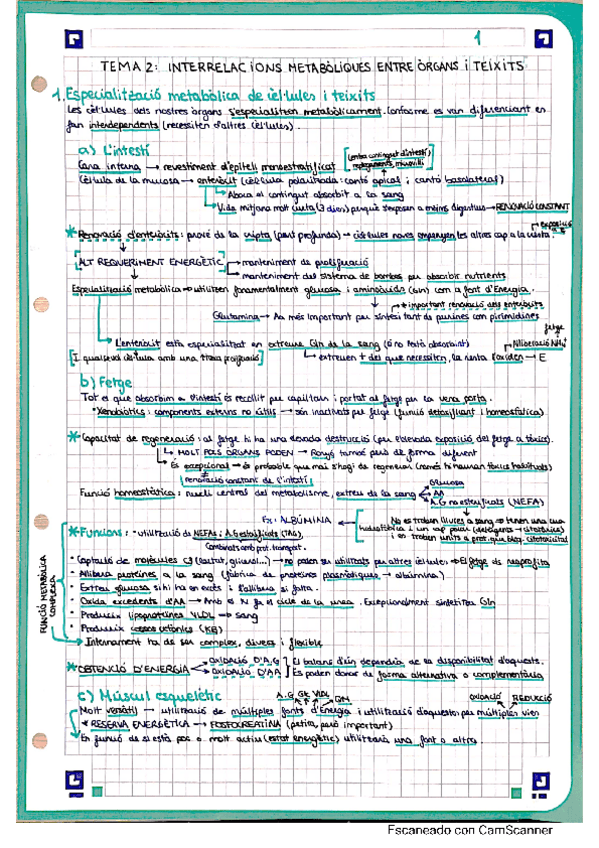 1
TEMA 2: INTERRELACIONS METABÒLIQUES ENTRE ÒRGANS I TEIXITS
1. Especialització metabòlica de cèl·lules i teixits
Les cèl·lules dels nostres òrgans s'especialitzen metabòlicament. Conforme es van diferenciant en
fan interdependents (necessiten d'altres cèl·lules).
a) L'intestí
Cara interna → revestiment d'epiteli monoestratificat [entra contingut d'intestí
microvilli]
Cèl·lula de la mucosa → enteròcit (cèl·lula polaritzada: cantó apical i cantó basolateral)
Aboca el contingut absorbit a la sang
Vida mitjana molt curta (3 dies) perquè s'exposen a mains digestius → RENOVACIÓ CONSTANT
exposició
* Renovació d'enteròcits: prové de la cripta (part profunda) → cèl·lules noves empenyen les altres cap a la vista.
ALT REQUERIMENT ENERGÈTIC → manteniment de proliferació
→ manteniment del sistema de bombes per absorbir nutrients
Especialització metabòlica → utilitzen fonamentalment glucosa i aminoàcids (Gln) com a font d'Energia.
* important renovació dels enteròcits
Glutamina → Aa més important per síntesi tant de purines com pirimidines
fetge
L'enteròcit està especialitzat en extreure Gln de la sang (si no està absorbint)
Alliberació NH4+
[I qualsevol cèl·lula amb una traxa proliferació]
extreuen + del que necessiten, la resta l'oxiden → E
b) Fetge
Tot el que absorbim a l'intestí és recollit per capil·lars i portat al fetge per la vena porta.
* Xenobiòtics: components externs no útils → són inactivats pel fetge (funció detoxificant i homeostàtica)
* Capacitat de regeneració: al fetge hi ha una elevada destrucció (per l'elevada exposició del fetge a tòxics).
MOLT POCS ÒRGANS PODEN → Ronyó també però de forma diferent
És excepcional → és probable que mai s'hagi de regenerar (només hi ha uns tòxics habituals)
renovació constant de l'intestí
Funció homeostàtica: nucli central del metabolisme, extreu de la sang
Glucosa
AA
A.G no esterificats (NEFA)
Ex: ALBÚMINA
No es troben lliures a sang → tenen una cua
hidrofòbica i un cap polar (detergents → citotòxics)
i es troben units a prot. que bloq. citotoxicitat
FUNCIÓ METABÒLICA COMPLEXA
* Funcions: • Utilització de NEFAs i A.G esterificats (TAG).
Combinats amb prot. transport.
• Captació de molècules C3 (lactat, glicerol...) → no poden ser utilitzats per altres cèl·lules → El fetge els reaprofita
• Allibera proteïnes a la sang (fàbrica de proteïnes plasmàtiques → albúmina)
• Extreu glucosa si hi ha en excés i l'allibera si falta.
• Oxida excedents d'AA → Amb el N fa el cicle de la urea. Excepcionalment sintetitza Gln
• Produeix lipoproteïnes VLDL → sang
• Produeix cossos cetònics (KB)
→ Internament ha de ser complex, divers i flexible
* OBTENCIÓ D'ENERGIA → OXIDACIÓ D'A.G
→ OXIDACIÓ D'AA
El balanç d'ús dependrà de la disponibilitat d'aquests.
Es poden donar de forma alternativa o complementària
c) Múscul esquelètic
A.G Glc VLDL
OXIDACIÓ REDUCCIÓ
Molt versàtil → utilització de múltiples fonts d'Energia i utilització d'aquestes per múltiples vies
* RESERVA ENERGÈTICA → FOSFOCREATINA (petita, però important)
En funció de si està poc o molt actiu (estat energètic) utilitzarà una font o altra.
Escaneado con CamScanner